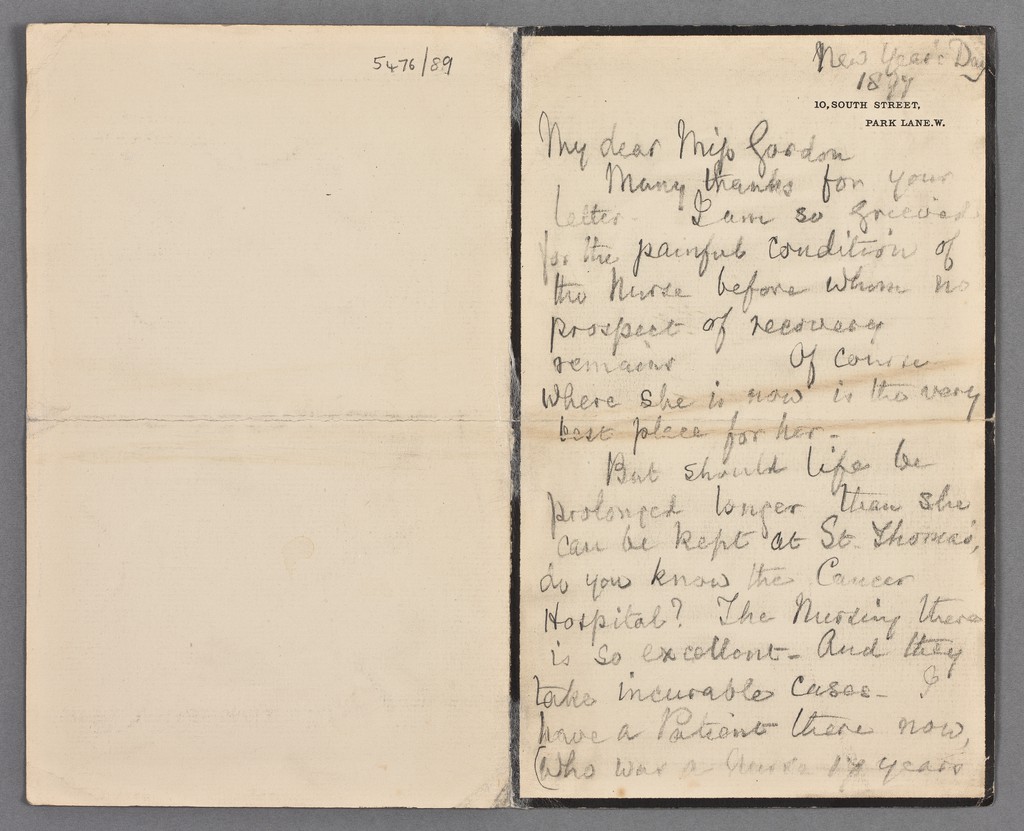 5476/89
New Year's Day
1897
10, SOUTH STREET,
PARK LANE. W.
My dear Miss Gordon
Many thanks for your
letter. I am so grieved
for the painful condition of
the Nurse before whom no
prospect of recovery
remains Of course
where she is now is the very
best place for her -
But should life be
prolonged longer than she
can be kept at St. Thomas's,
do you know the Cancer
Hospital? The Nursing there
is so excellent - And they
take incurable cases - I
have a Patient there now,
(who was a Nurse years